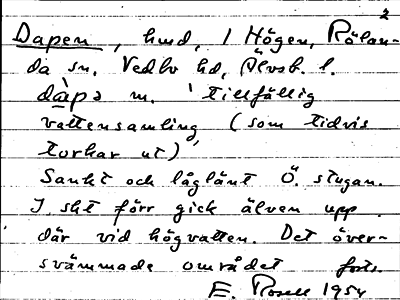 2
Dapen, hmd, 1 Högen, Rölan-
da sn. Vedbo hd, Älvsb. l.
dàpə m. 'tillfällig
vattensamling (som tidvis
torkar ut)'
Sankt och låglänt Ö. stugan.
I skt förr gick älven upp
där vid högvatten. Det över-
svämmade området forts.
E. Rosell 1954